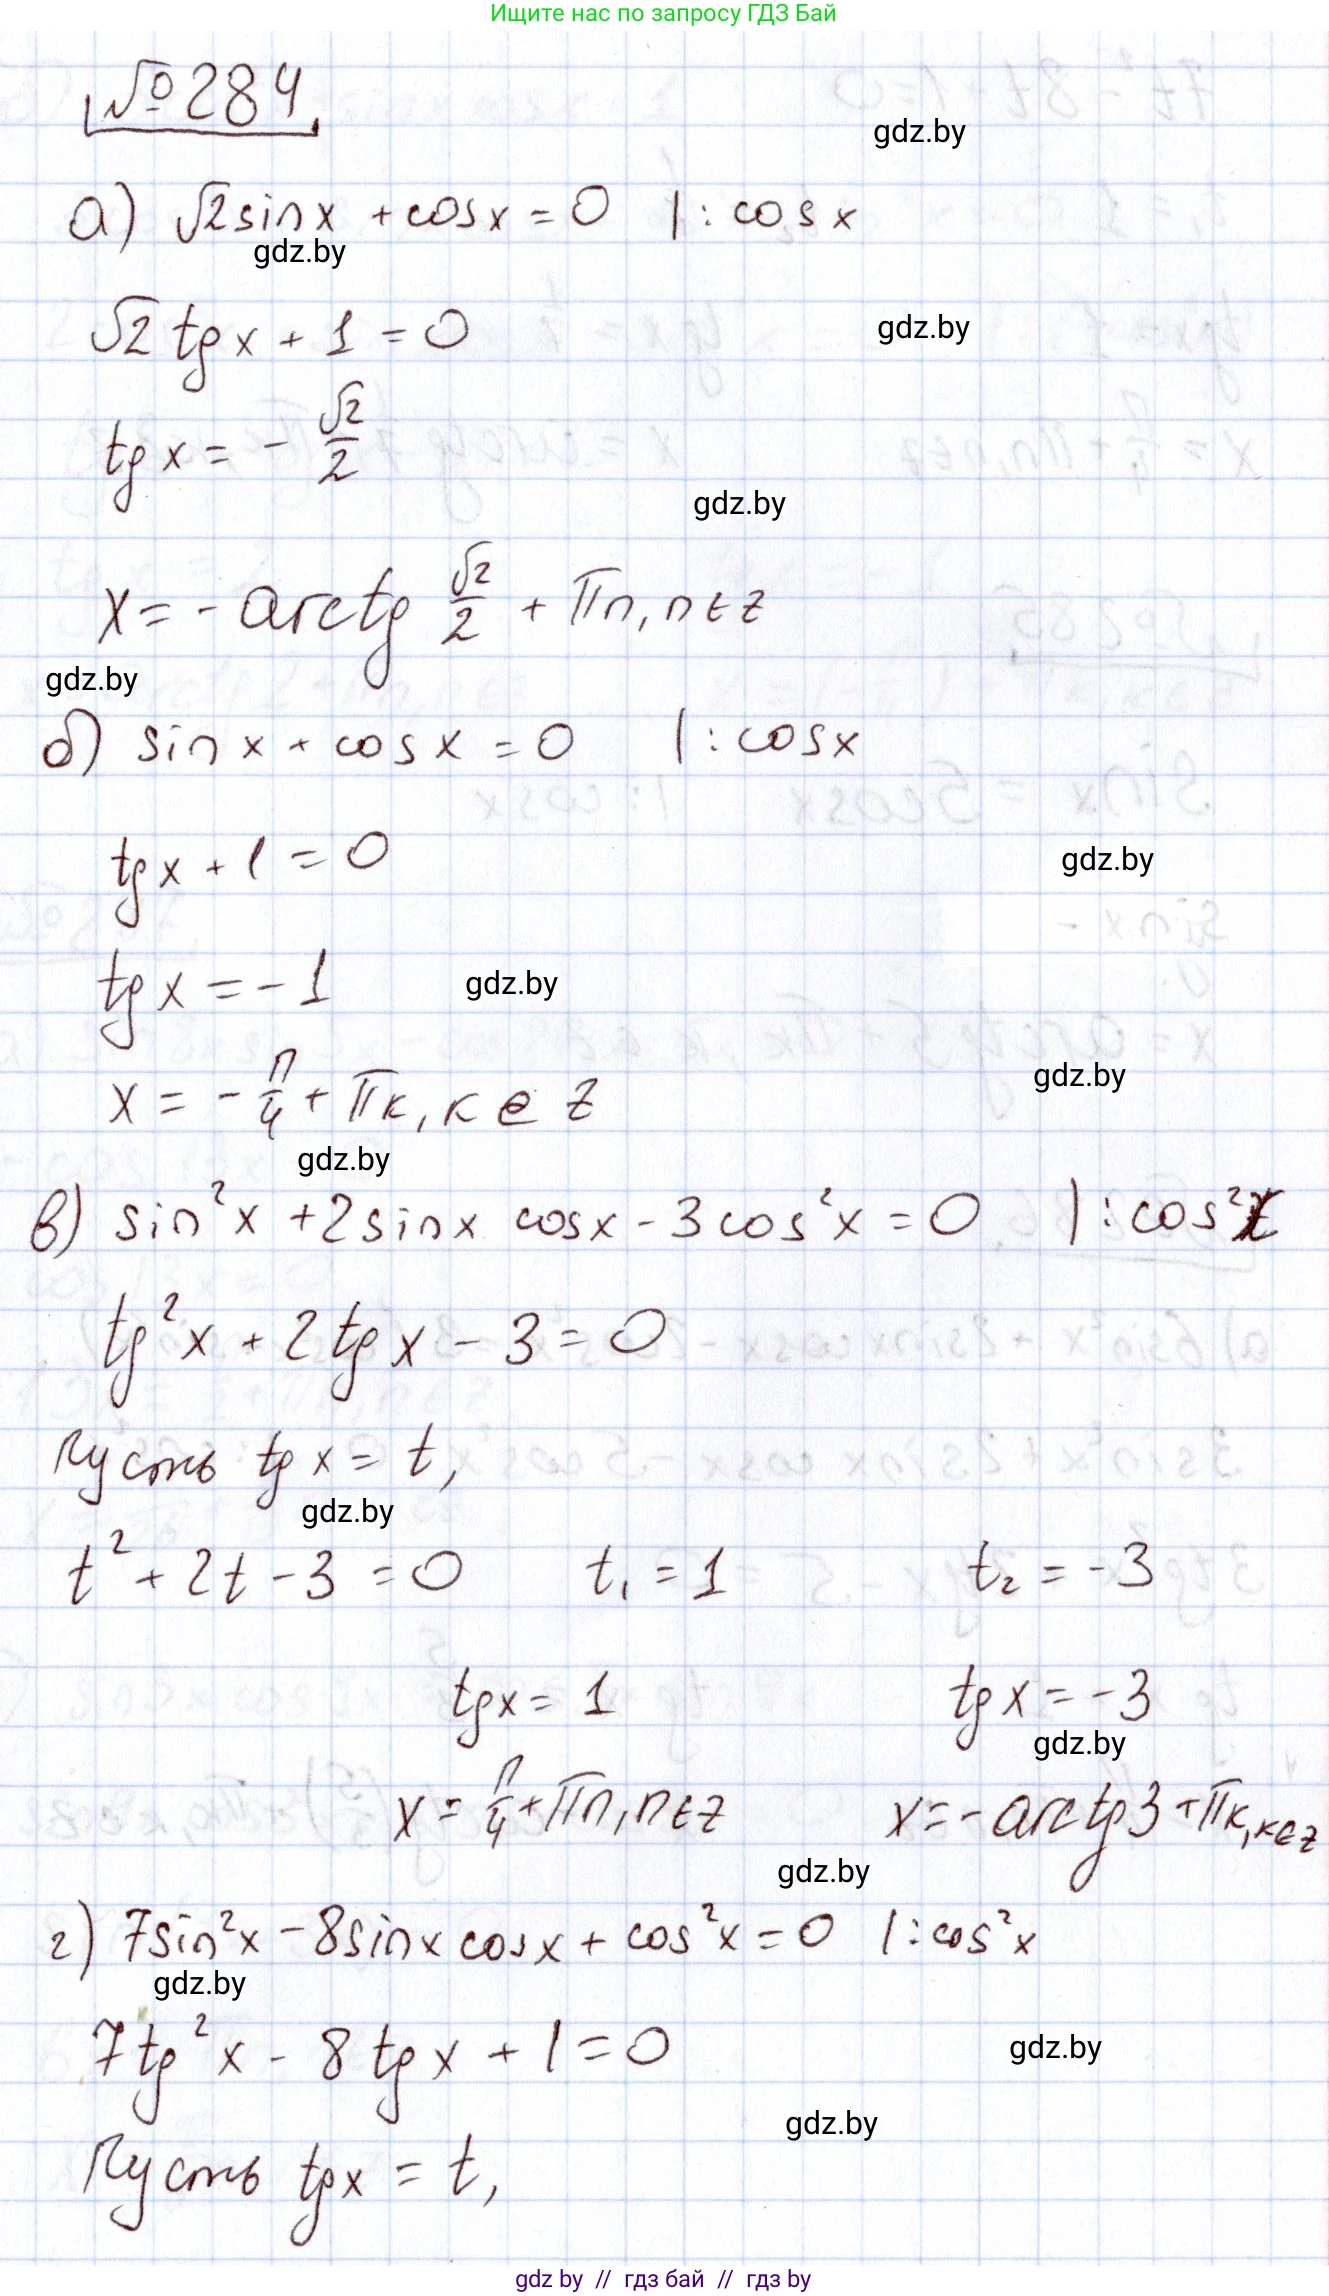 Ищите нас по запросу ГДЗ Бай
№284
gdz.by
а) √2 sin x + cos x = 0 | : cos x
gdz.by
√2 tg x + 1 = 0
gdz.by
tg x = - √2/2
gdz.by
x = - arctg √2/2 + πn, n ∈ z
gdz.by
б) sin x + cos x = 0 | : cos x
tg x + 1 = 0
gdz.by
tg x = - 1
gdz.by
gdz.by
x = - π/4 + πк, к ∈ z
gdz.by
в) sin²x + 2 sin x cos x - 3 cos²x = 0 | : cos²x
tg²x + 2 tg x - 3 = 0
Пусть tg x = t,
gdz.by
t² + 2t - 3 = 0 t₁ = 1 t₂ = -3
tg x = 1 tg x = -3
gdz.by
x = π/4 + πn, n ∈ z x = - arctg 3 + πк, к ∈ z
gdz.by
г) 7 sin²x - 8 sin x cos x + cos²x = 0 | : cos²x
gdz.by
7 tg²x - 8 tg x + 1 = 0
gdz.by
gdz.by
Пусть tg x = t,
gdz by // гдз бай // гдз by